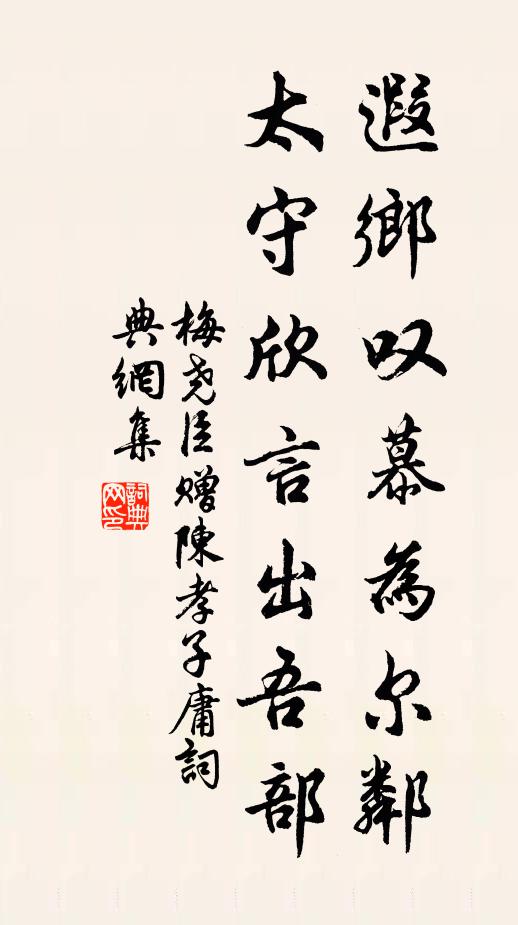 遐鄉叹慕為尔鄰
太守欣言出吾部
梅尧臣贈陳孝子庸詞
典網集
詞典
网印